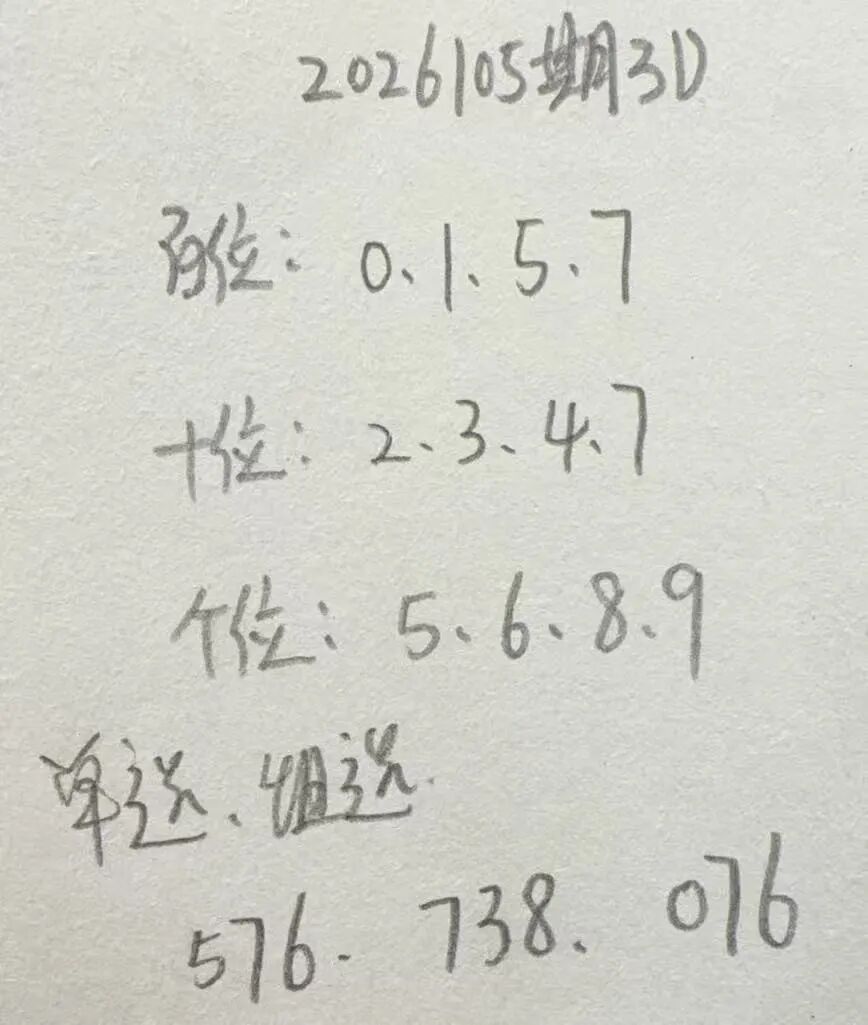 2026105期3D
百位：0、1、5、7
十位：2、3、4、7
个位：5、6、8、9
单选、组选
576. 738. 076